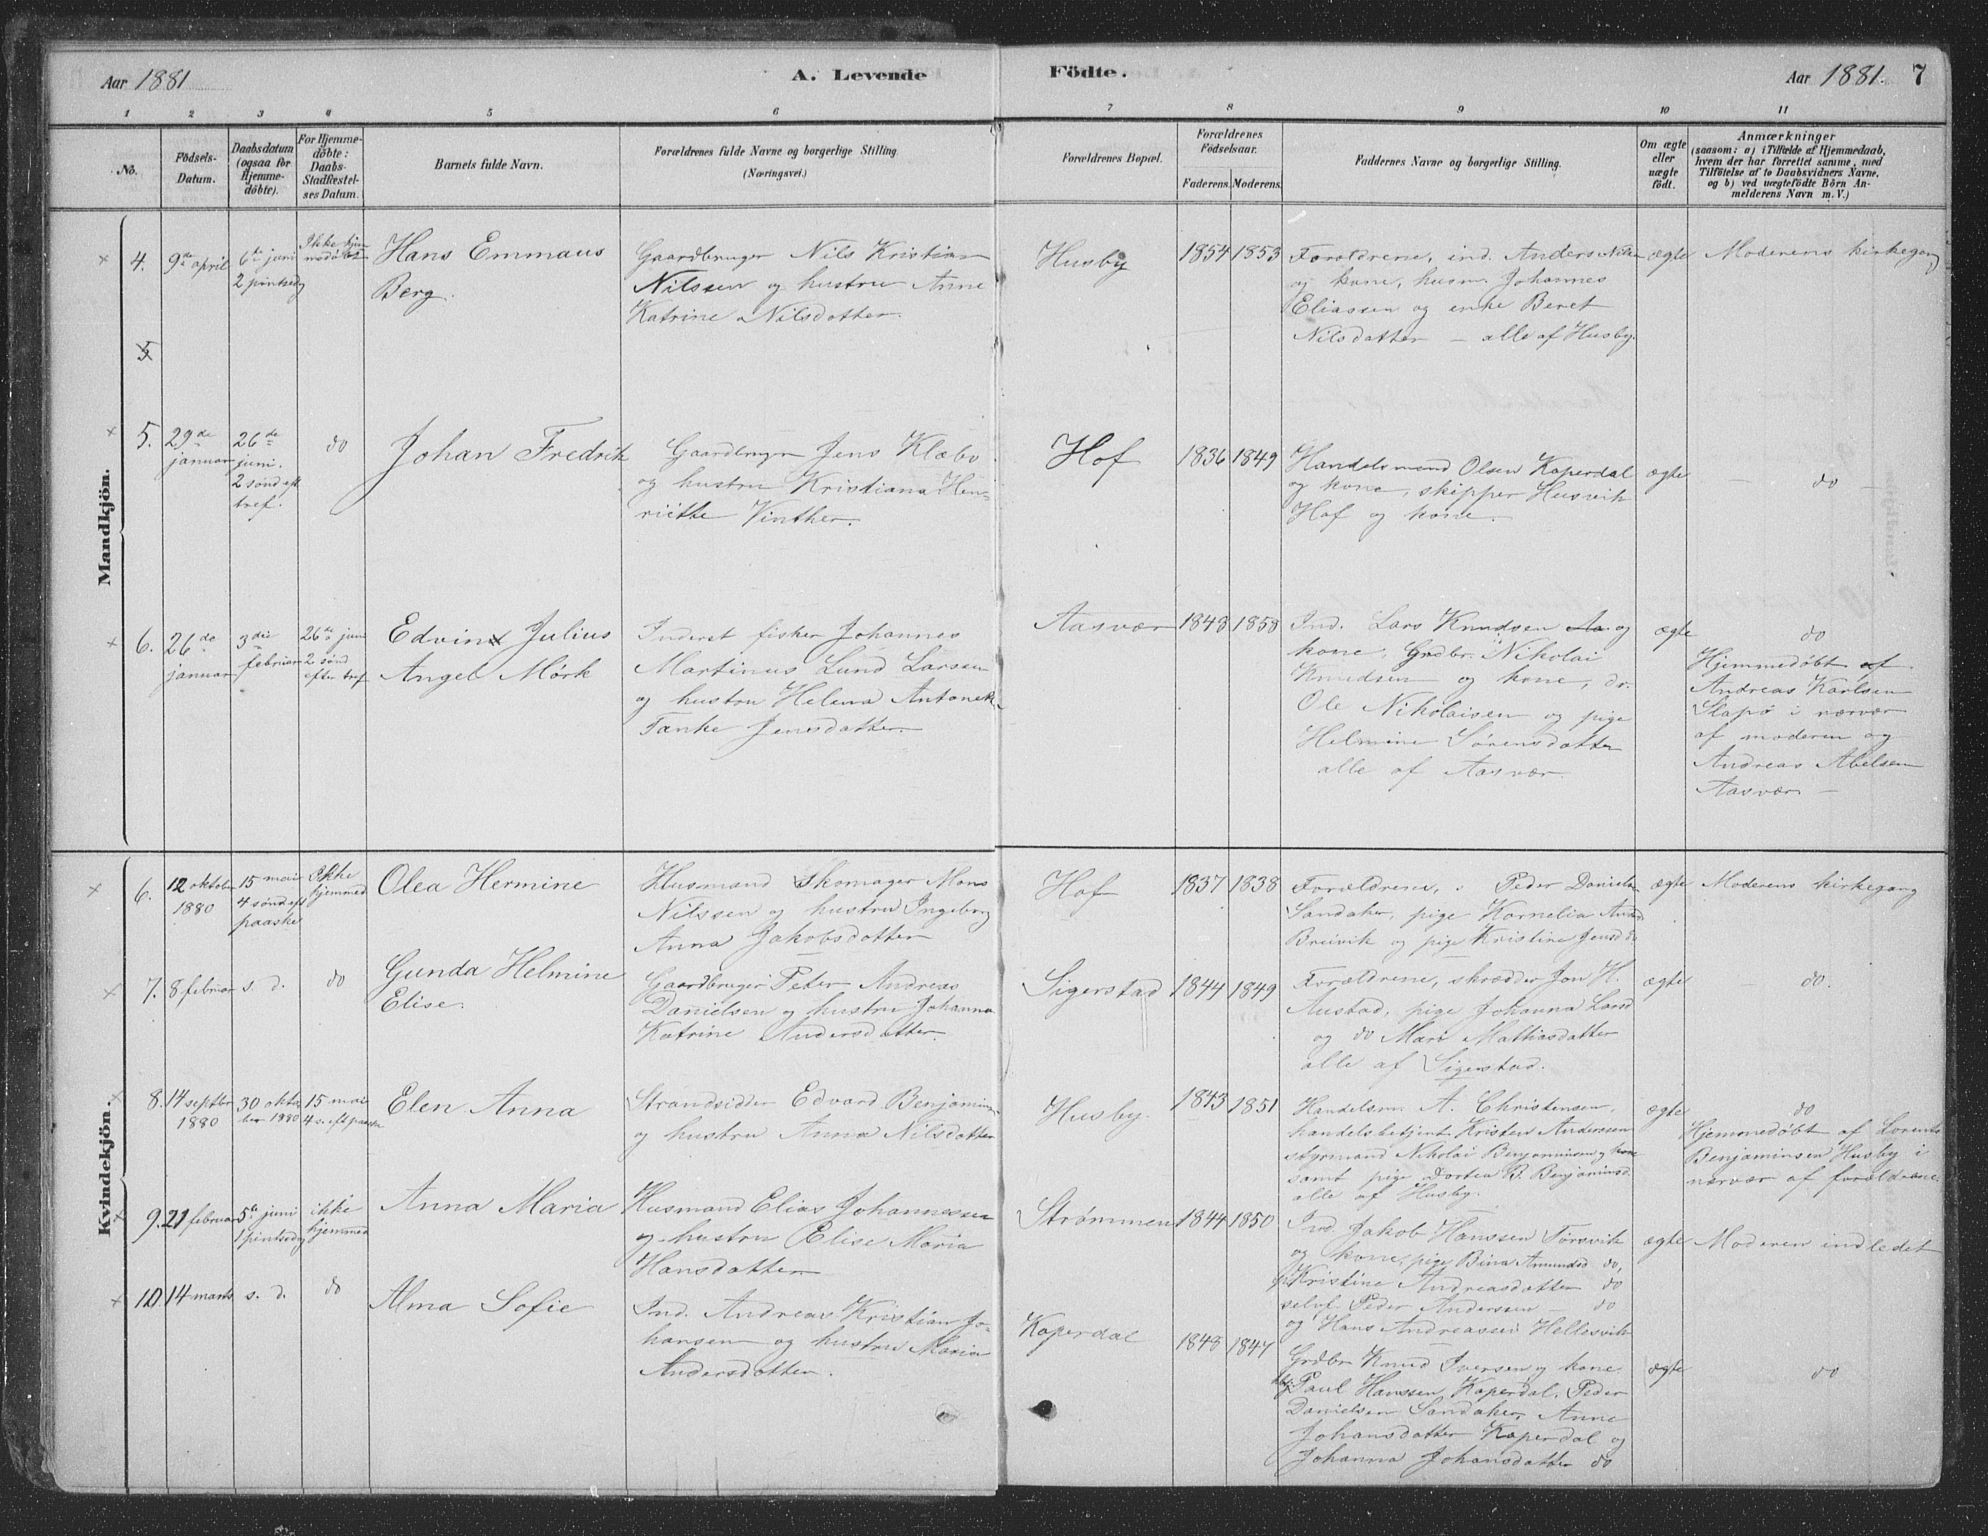 Aar 1881
A. Levende
Födte.
Aar 1881. 7
1 2 3 4 5 6 7 8 9 10 11
No.
Födsels-
Datum.
Daabsdatum
(ogsaa for
Hjemme-
döbte).
For Hjemme-
döbte:
Daabs-
Stadfæstel-
ses Datum.
Barnets fulde Navn.
Forældrenes fulde Navne og borgerlige Stilling.
(Næringsvei.)
Forældrenes Bopæl.
Forældrenes
Födselsaar.
Faderens. Moderens.
Faddernes Navne og borgerlige Stilling.
Om ægte
eller
uægte
födt.
Anmærkninger
(saasom: a) i Tilfælde af Hjemmedaab,
hvem der har forrettet samme, med
Tilföielse af to Daabsvidners Navne,
og b) ved uægtefödte Börn An-
melderens Navn m. V.)
Mandkjön.
4.
9de april
6te juni
2 pintsedg
Ikke hjem
medøbt
Hans Emmaus
Berg.
Gaardbruger Nils Kristian
Nilssen og hustru Anne
Katrine Nilsdatter.
Husby
1854
1853
Foræld­rene, ind. Anders Nils
og kone, husm. Johannes
Eliassen og enke Beret
Nilsdatter – alle af Husby.
ægte
Moderens kirkegang
5
5.
29de
januar
26de
juni.
2 sønd eft
tref.
do
Johan Fredrik
Gaardbruger Jens Klæbo
og hustru Kristiana Hen-
riette Vinther.
Hof
1836
1849
Handelsmand Olsen Koperdal
og kone, skipper Husvik
Hof og kone.
ægte
– do
6.
26de
januar
3die
februar
26de juni
2 sønd
efter tref
Edvin Julius
Angel Mörk
Inderst fisker Johannes
Martinus Lund Larsen
og hustru Helena Antonette
Tanke Jensdatter.
Aasvær
1848
1858
Ind. Lars Knudsen Aa og
kone, Grdbr. Nikolai
Knudsen og kone, do.
Ole Nikolaisen og pige
Helmine Sörensdatter
alle af Aasvær.
ægte
do
Hjemmedøbt af
Andreas Karlsen
Slapö i nærvær
af moderen og
Andreas Abelsen
Aasvær –
Kvindekjön.
6.
12 oktober
1880
15 mai
4 sønd eft
paaske
Ikke
hjemmed
Olea Hermine
Husmand Skomager Mons
Nilssen og hustru Ingeborg
Anna Jakobsdatter
Hof
1837
1838
Forældrene, Peder Daniels
Sandaker, pige Kornelia
Breivik og pige Kristine Jensd do
ægte
Moderens kirkegang
7.
8 februar
s. d.
do
Gunda Helmine
Elise.
Gaardbruger Peter Andreas
Danielsen og hustru Johanna
Katrine Andersdatter.
Sigerstad
1844
1849
Forældrene, skrædder Jon H.
Austad, pige Johanna Larsd
og do Mari Mathiasdatter
alle af Sigerstad.
ægte
– do.
8.
14 septbr
1880
30 okto
ber 1880
15 mai
4 s. eft paaske
Elen Anna
Strandsidder Edvard Benjamins
og hustru Anna Nilsdatter
Husby.
1843
1851
Handelsm. A. Christensen,
handelsbetjent Kristen Anderssen
styrmand Nikolai Benjaminsen og kone
samt pige Dortea B. Benjaminsd.
alle af Husby.
ægte
do
Hjemmedøbt af Lorents
Benjaminsen Husby i
nærvær af forældrene.
9.
21 februar
5te juni
1 pintsedg
ikke
hjemmed
Anna Maria
Husmand Elias Johannessen
og hustru Elise Maria
Hansdatter
Strömmen
1844
1850
Ind. Jakob Hanssen Torsvik
og kone, pige Bina Amundsd do,
Kristine Andreasdatter do
selvf. Peder Anderssen – do
og Hans Andreassen Hellesvik
ægte
Moderen indledet
10
14 marts
s. d.
do
Alma Sofie
Ind. Andreas Kristian Jo-
hansen og hustru Maria
Andersdatter.
Koperdal
1848
1847
Grdbr Knud Iversen og kone
Paul Hanssen Koperdal, Peder
Danielsen Sandaker, Anne
Johansdatter Koperdal og
Johanna Johansdatter do
ægte
do